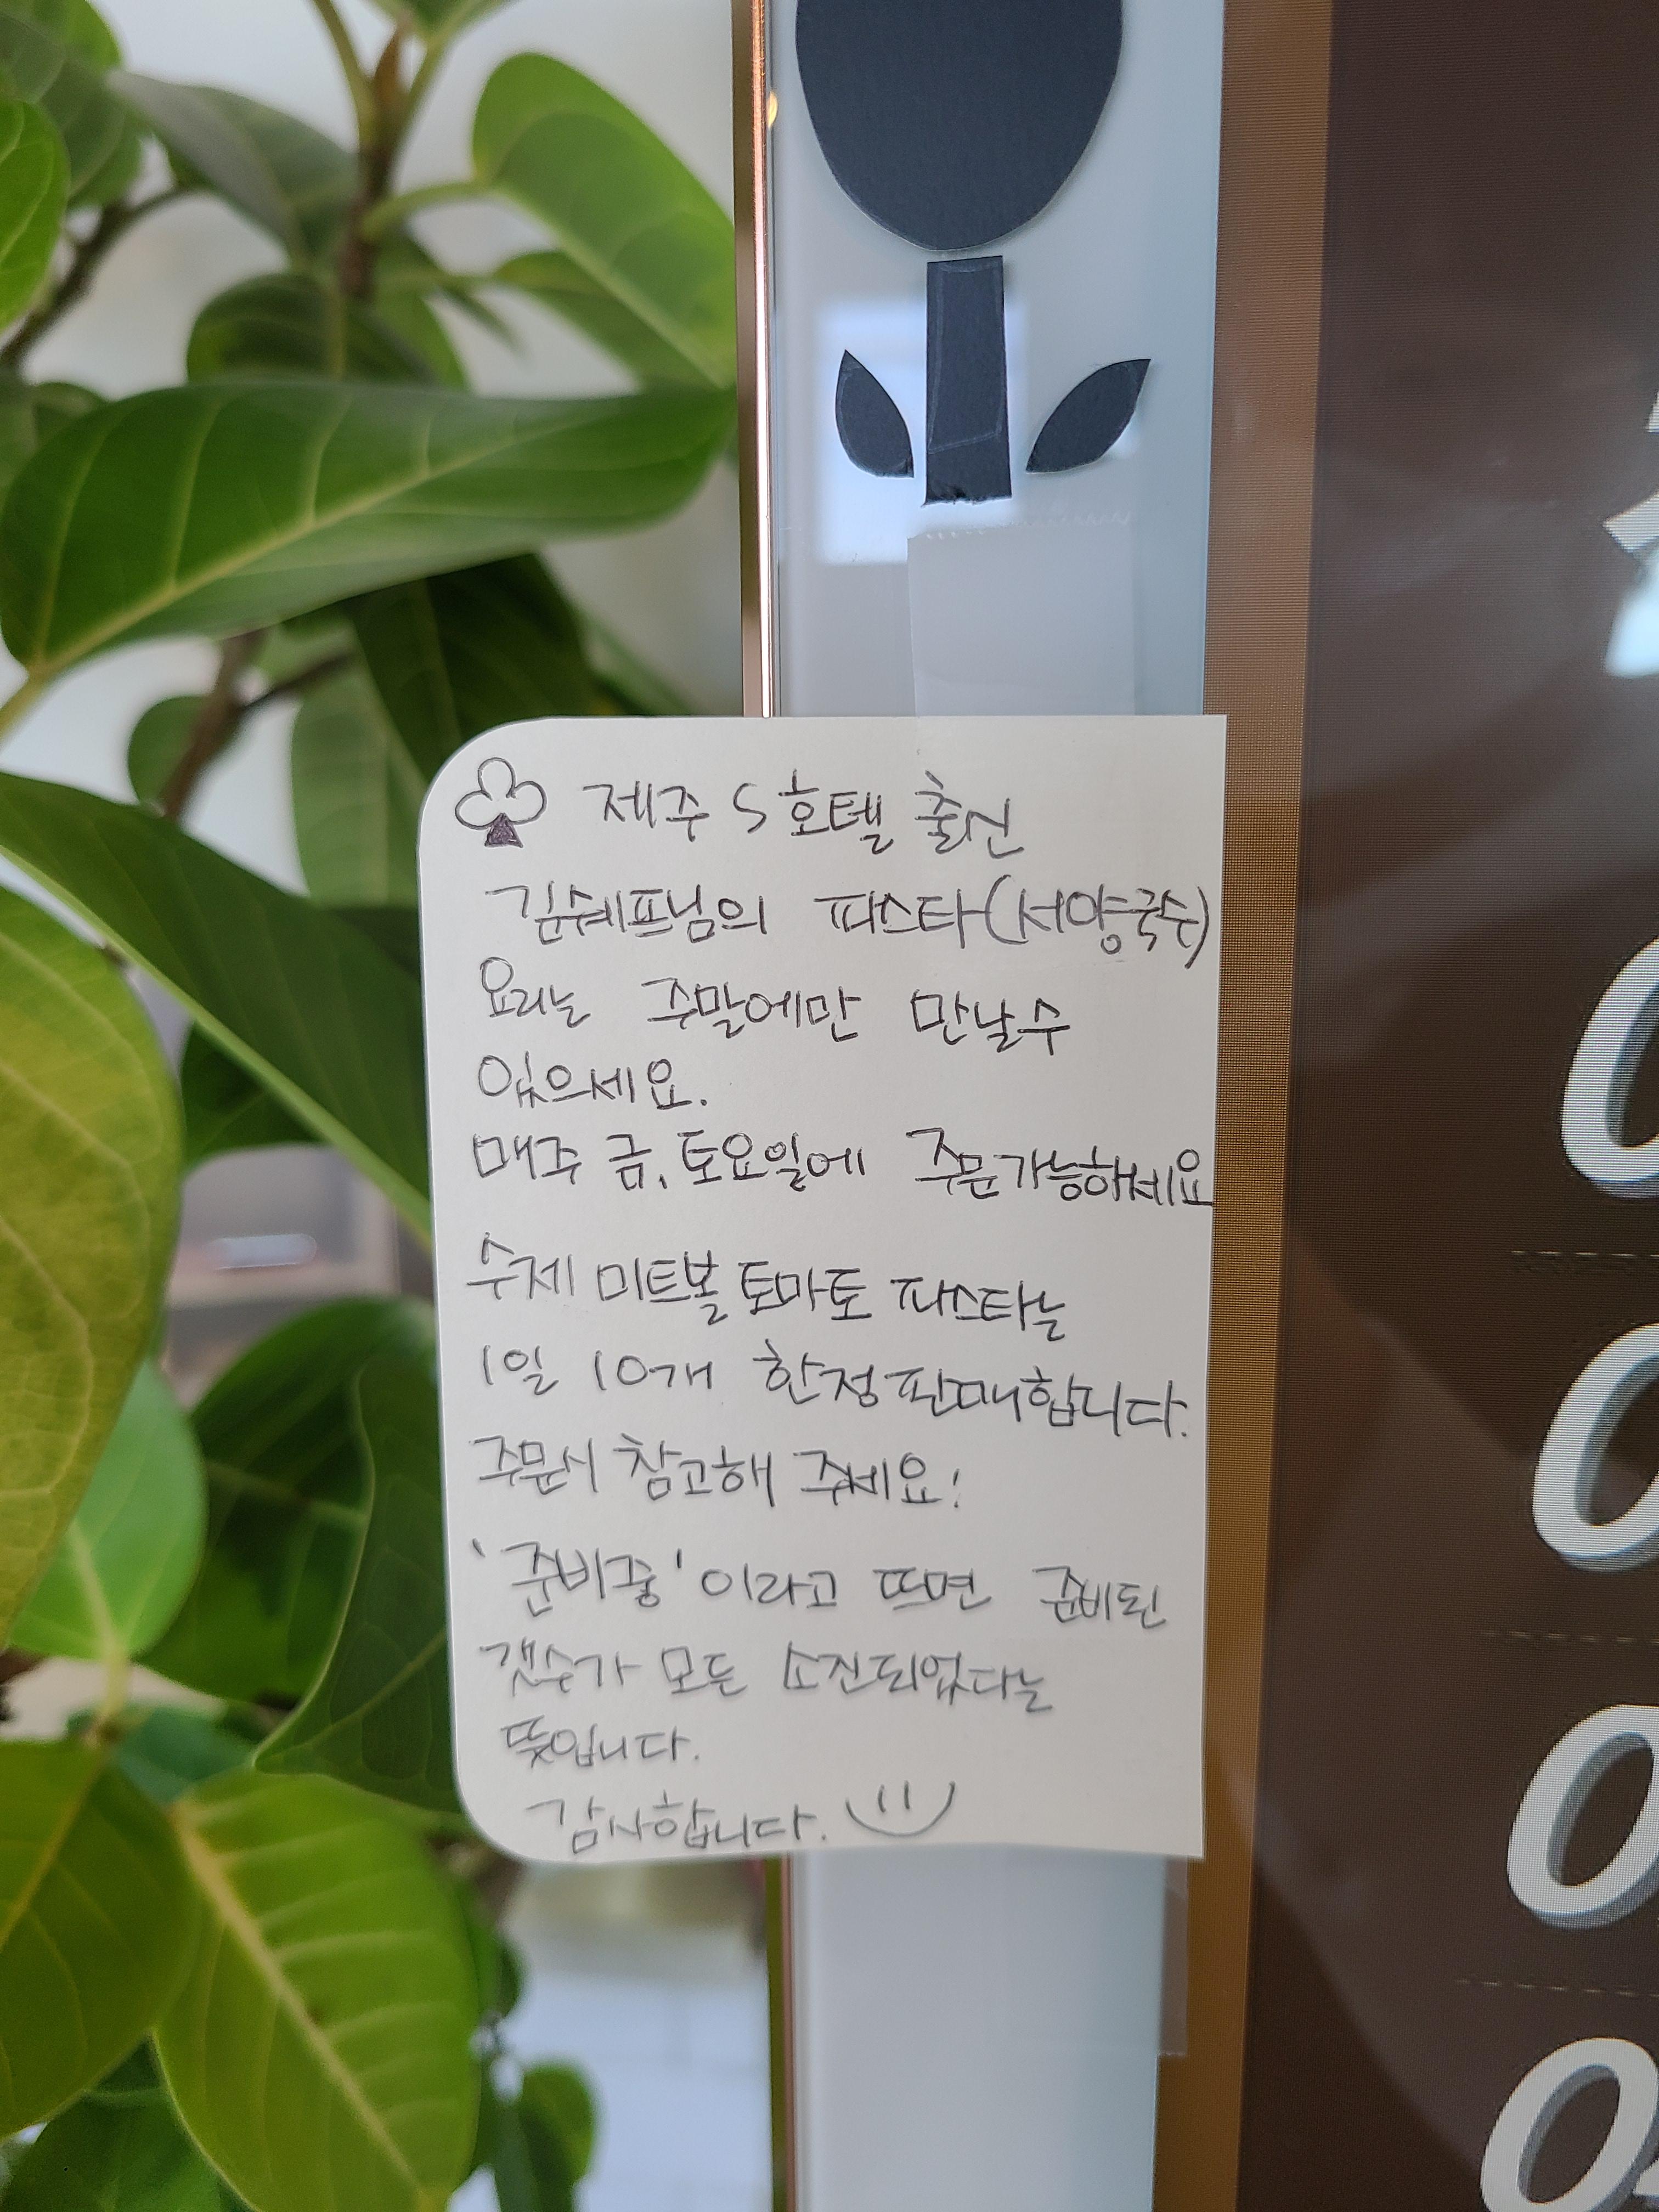 제주 S 호텔 출신
김쉐프님의 파스타(서양국수)
요리는 주말에만 만날수
있으세요.
매주 금, 토요일에 주문가능하세요
수제 미트볼 토마토 파스타는
1일 10개 한정판매합니다.
주문시 참고해 주세요!
'준비중'이라고 뜨면 준비된
갯수가 모든 소진되었다는
뜻입니다.
감사합니다.